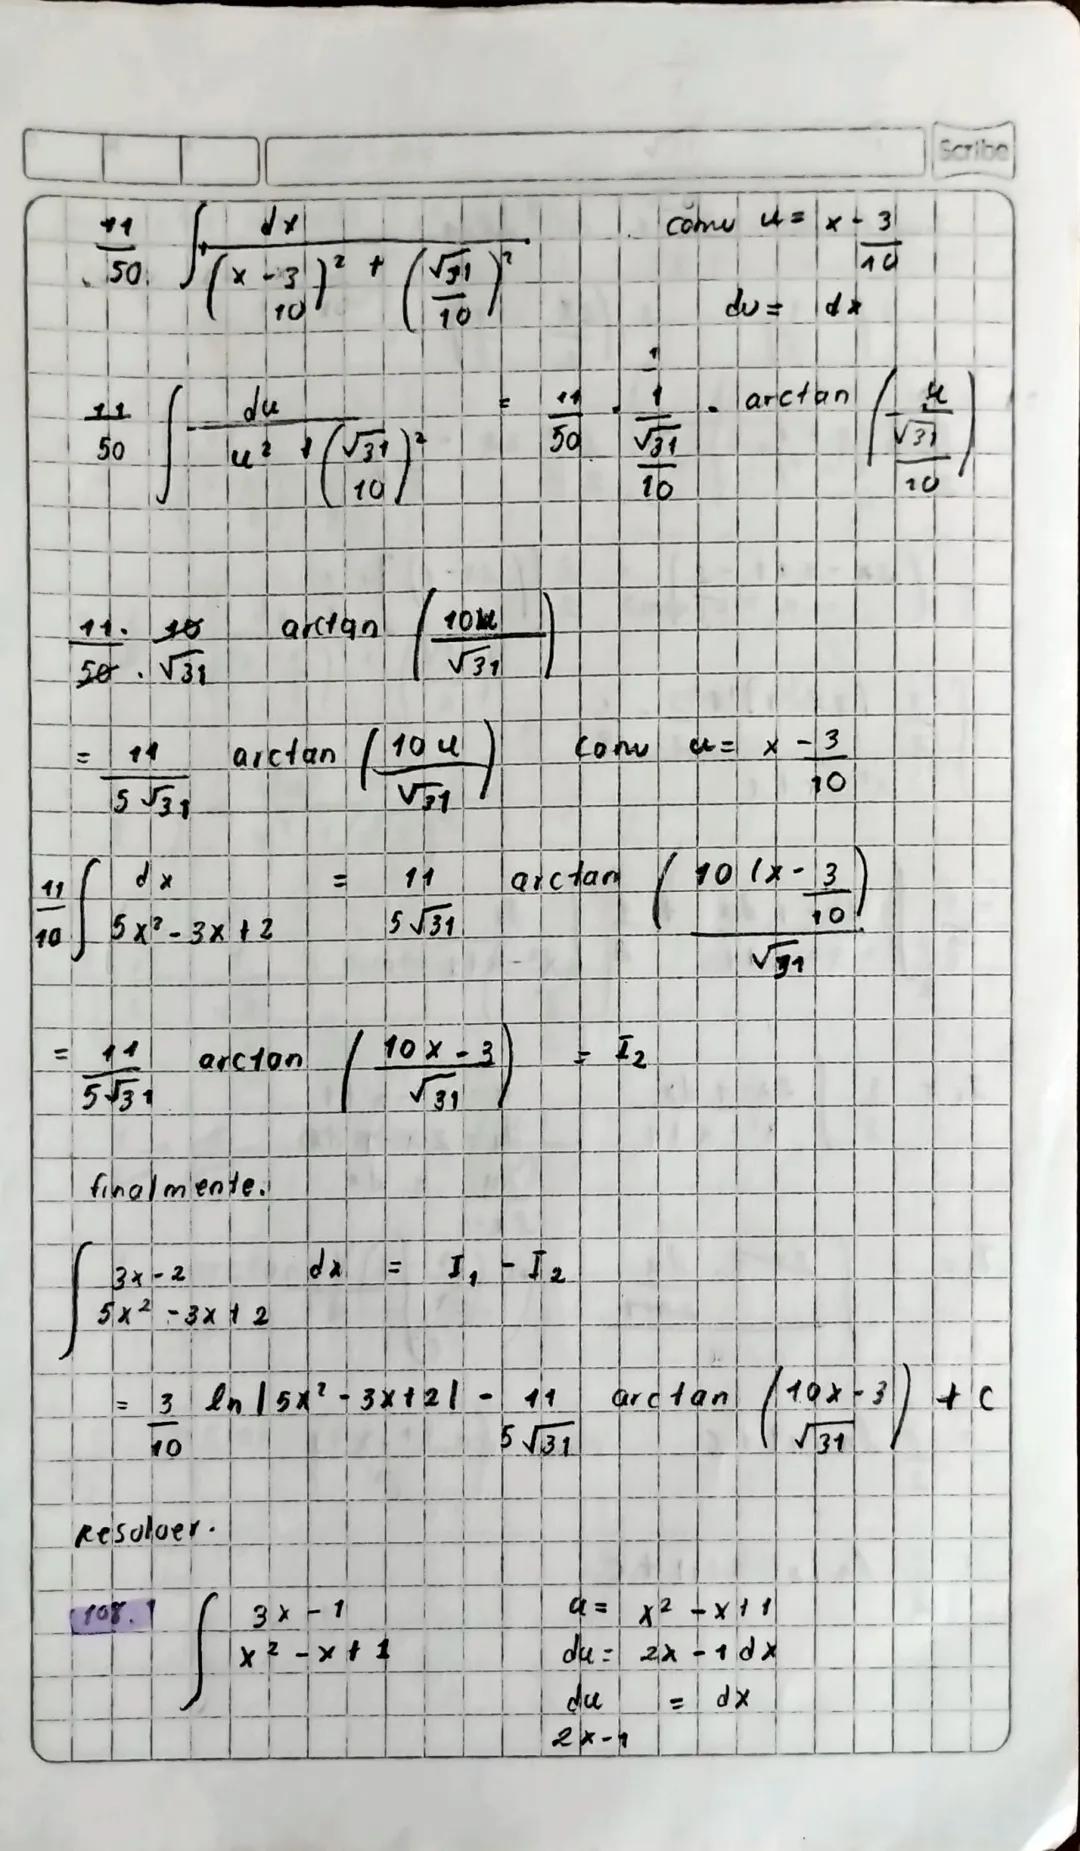 Scribe
11/50 ∫ dx / ((x - 3/10)² + (√31/10)²) como u = x - 3/10
du = dx
11/50 ∫ du / (u² + (√31/10)²) = 11/50 · 1/(√31/10) · arctan (u/(√31/10))
11/50 · 10/√31 arctan (10u/√31)
= 11/(5√31) arctan (10u/√31) como u = x - 3/10
11/10 ∫ dx / (5x² - 3x + 2) = 11/(5√31) arctan (10(x - 3/10)/√31)
= 11/(5√31) arctan ((10x - 3)/√31) = I₂
finalmente.
∫ (3x - 2)/(5x² - 3x + 2) dx = I₁ - I₂
= 3/10 ln |5x² - 3x + 2| - 11/(5√31) arctan ((10x - 3)/√31) + c
Resolver.
108. ∫ (3x - 1)/(x² - x + 1) u = x² - x + 1
du = 2x - 1 dx
du/(2x - 1) = dx